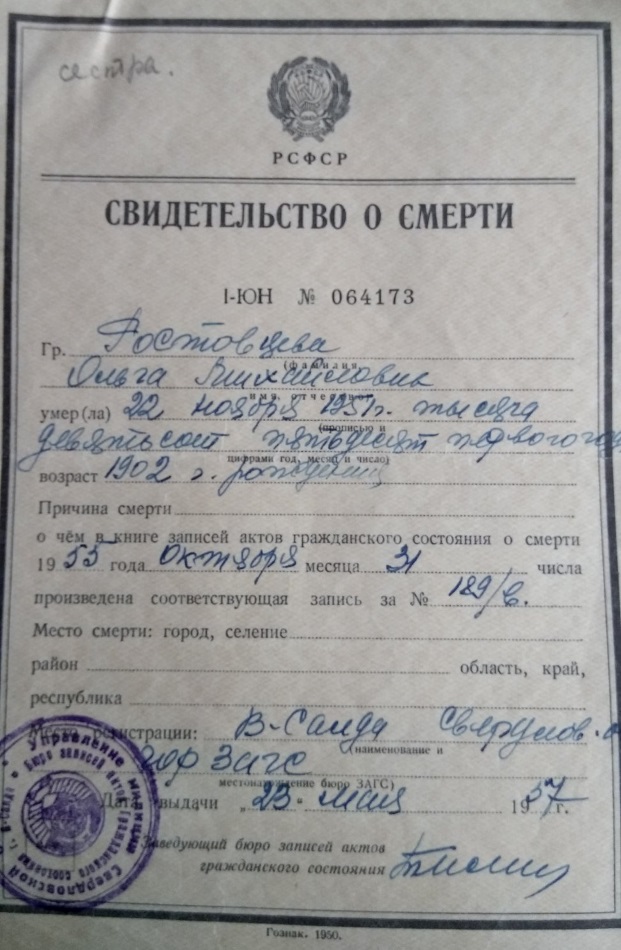 сестра.
РСФСР
СВИДЕТЕЛЬСТВО О СМЕРТИ
I-ЮН № 064173
Гр. Ростовцева
(фамилия,
Ольга Михайловна
имя, отчество)
умер(ла) 22 ноября 1951г. тысяча
(прописью и
девятьсот пятьдесят первого
цифрами год, месяц и число)
возраст 1902 г. рождения
Причина смерти
о чём в книге записей актов гражданского состояния о смерти
19 55 года Октября месяца 31 числа
произведена соответствующая запись за № 189/в.
Место смерти: город, селение
район область, край,
республика
регистрации: В-Салда Свердлов.
(наименование и
гор ЗАГС
местонахождение бюро ЗАГС)
Дата выдачи „23" мая 1957 г.
Заведующий бюро записей актов
гражданского состояния
Управление милиции
Бюро записей актов гражданского состояния
Свердловской
г. В-Салда
Гознак. 1950.